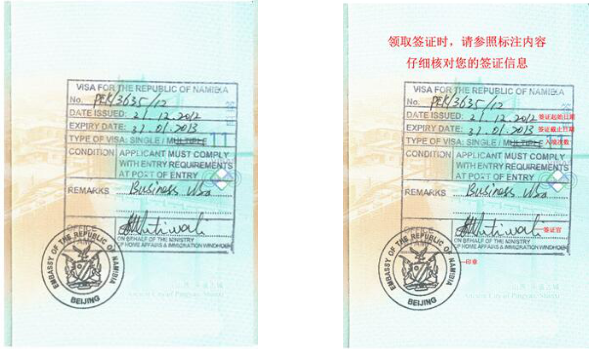 VISA FOR THE REPUBLIC OF NAMIBIA
No. PEK/3635/12
DATE ISSUED: 21.12.2012
EXPIRY DATE: 31.01.2013
TYPE OF VISA: SINGLE / MULTIPLE
CONDITION APPLICANT MUST COMPLY
WITH ENTRY REQUIREMENTS
AT PORT OF ENTRY
REMARKS Business Visa
ON BEHALF OF THE MINISTRY
OF HOME AFFAIRS & IMMIGRATION WINDHOEK
EMBASSY OF THE REPUBLIC OF NAMIBIA
BEIJING
领取签证时，请参照标注内容
仔细核对您的签证信息
VISA FOR THE REPUBLIC OF NAMIBIA
No. PEK/3635/12
DATE ISSUED: 21.12.2012 签证起始日期
EXPIRY DATE: 31.01.2013 签证截止日期
TYPE OF VISA: SINGLE / MULTIPLE
CONDITION APPLICANT MUST COMPLY
WITH ENTRY REQUIREMENTS
AT PORT OF ENTRY
REMARKS Business Visa
签证官
ON BEHALF OF THE MINISTRY
OF HOME AFFAIRS & IMMIGRATION WINDHOEK
EMBASSY OF THE REPUBLIC OF NAMIBIA
BEIJING
印章